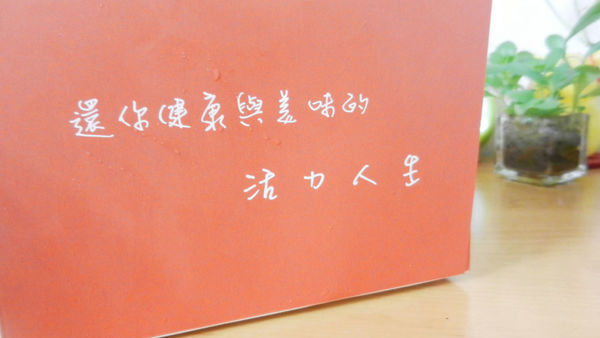 還你健康與美味的
活力人生